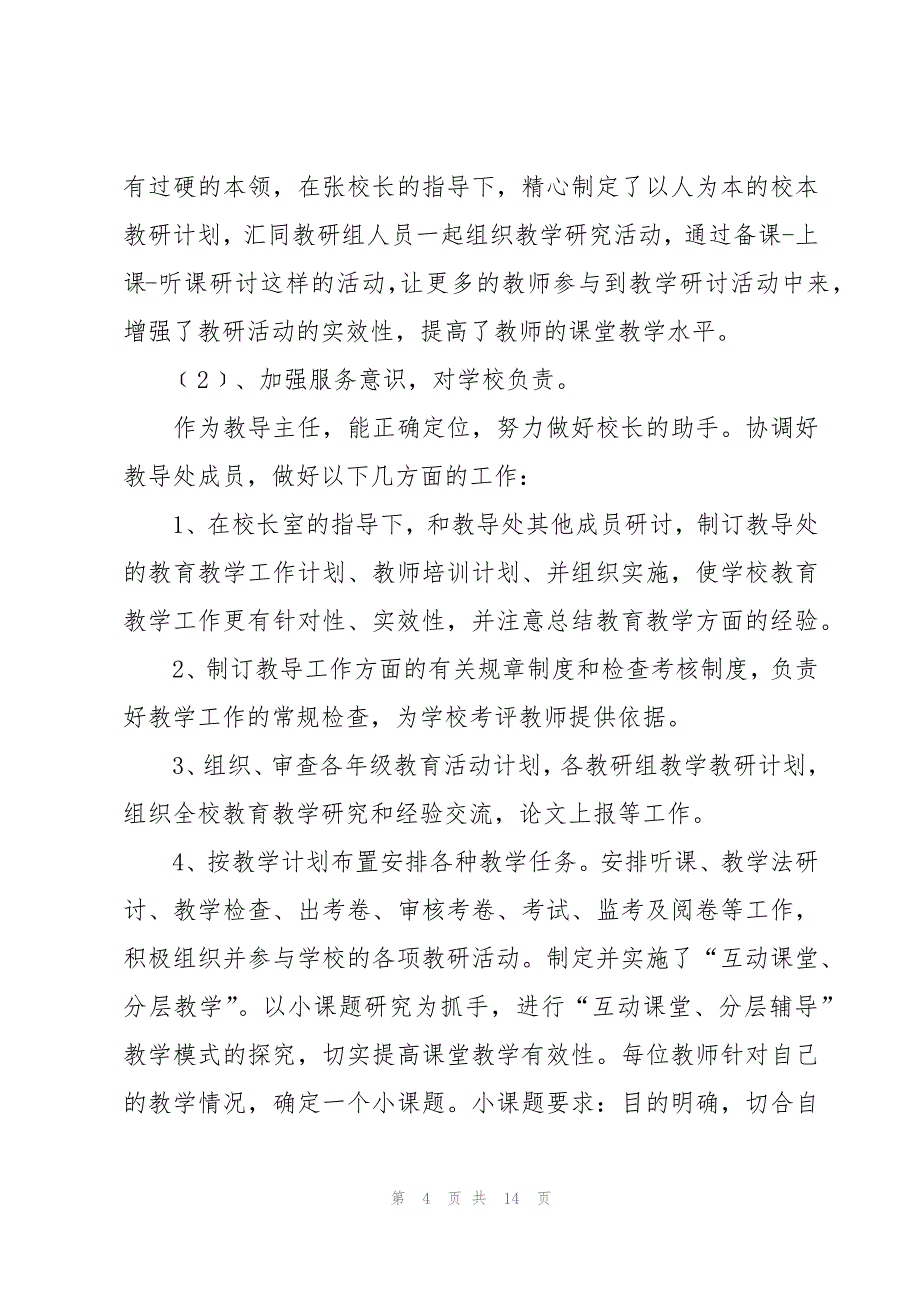 有过硬的本领，在张校长的指导下，精心制定了以人为本的校本
教研计划，汇同教研组人员一起组织教学研究活动，通过备课-上
课-听课研讨这样的活动，让更多的教师参与到教学研讨活动中来，
增强了教研活动的实效性，提高了教师的课堂教学水平。
﹙2﹚、加强服务意识，对学校负责。
作为教导主任，能正确定位，努力做好校长的助手。协调好
教导处成员，做好以下几方面的工作：
1、在校长室的指导下，和教导处其他成员研讨，制订教导处
的教育教学工作计划、教师培训计划、并组织实施，使学校教育
教学工作更有针对性、实效性，并注意总结教育教学方面的经验。
2、制订教导工作方面的有关规章制度和检查考核制度，负责
好教学工作的常规检查，为学校考评教师提供依据。
3、组织、审查各年级教育活动计划，各教研组教学教研计划，
组织全校教育教学研究和经验交流，论文上报等工作。
4、按教学计划布置安排各种教学任务。安排听课、教学法研
讨、教学检查、出考卷、审核考卷、考试、监考及阅卷等工作，
积极组织并参与学校的各项教研活动。制定并实施了“互动课堂、
分层教学”。以小课题研究为抓手，进行“互动课堂、分层辅导”
教学模式的探究，切实提高课堂教学有效性。每位教师针对自己
的教学情况，确定一个小课题。小课题要求：目的明确，切合自
第 4 页 共 14 页